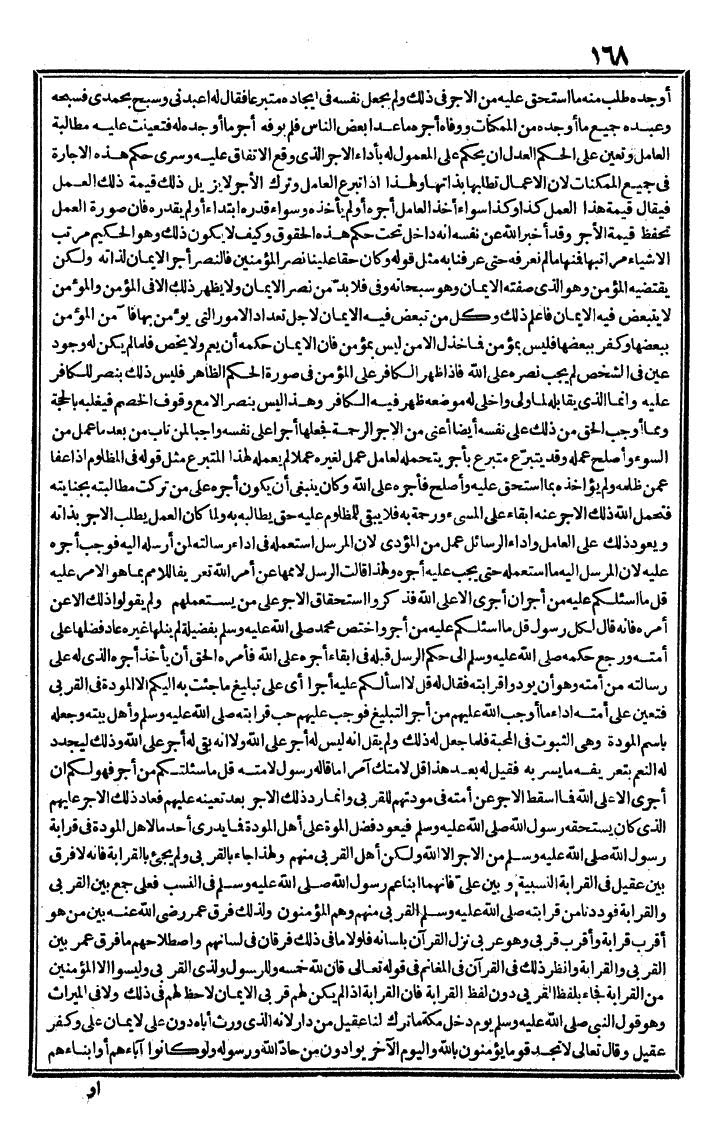 ١٦٨
أوجده طلب منه ما استحق عليه من الاجر في ذلك ولم يجعل نفسه في ايجاده متبرعا فقال له اعبدني وسبح بحمدى فسبحه
وعبده جميع ما أوجده من الممكنات ووفاه أجره ماعدا بعض الناس فلم يوفه أجر ما أوجده له فتعينت عليه مطالبة
العامل وتعين على الحكم العدل ان يحكم على المعمول له بأداء الاجر الذى وقع الاتفاق عليه وسرى حكم هذه الاجارة
في جميع الممكنات لان الاعمال تطلبها بذاتها ولهذا اذا تبرع العامل وترك الأجر لا يزيل ذلك قيمة ذلك العمل
فيقال قيمة هذا العمل كذا وكذا سواء أخذ العامل أجره أو لم يأخذه وسواء قدره ابتداء أو لم يقدره فان صورة العمل
تحفظ قيمة الأجر وقد أخبر الله عن نفسه انه داخل تحت حكم هذه الحقوق وكيف لا يكون ذلك وهو الحكيم مرتب
الاشياء مراتبها فنها مالم نعرفه حتى عرفنا به مثل قوله وكان حقا علينا نصر المؤمنين فالنصر أجر الايمان لذاته ولكن
يقتضيه المؤمن وهو الذى صفته الايمان وهو سبحانه وفى فلابد من نصر الايمان ولا يظهر ذلك الا فى المؤمن والمؤمن
لا يتبعض فيه الايمان فاعلم ذلك وكل من تبعض فيه الايمان لاجل تعداد الامور التى يؤمن بها فآمن المؤمن
ببعضها وكفر ببعضها فليس بمؤمن فما خذل الا من ليس بمؤمن فان الايمان حكمه أن يعم ولا يخص فلما لم يكن له وجود
عين فى الشخص لم يجب نصره على الله فاذا ظهر الكافر على المؤمن فى صورة الحكم الظاهر فليس ذلك بنصر للكافر
عليه وانما الذى يقابله لما ولى واخلى له موضعه ظهر فيه الكافر وهذا ليس بنصر الا مع وقوف الخصم فيغلبه بالحجة
ومما أوجب الحق من ذلك على نفسه أيضا أعنى من الاجر الرحمة فجعلها أجرا على نفسه واجبا لمن تاب من بعد ما عمل من
السوء وأصلح عمله وقد يتبرّع متبرع بأجر يتحمله لعامل عمل لغيره عملا لم يعمله لهذا المتبرع مثل قوله فى المظلوم اذا عفا
عمن ظلمه ولم يؤاخذه بما استحق عليه وأصلح فأجره على الله وكان ينبغى أن يكون أجره على من تركت مطالبته بجنايته
فتحمل الله ذلك الاجر عنه ابقاء على المسىء ورحمة به فلا يبقى للمظلوم عليه حق يطالبه به ولما كان العمل يطلب الاجر بذاته
ويعود ذلك على العامل واداء الرسائل عمل من المؤدى لان المرسل استعمله فى اداء رسالته لمن أرسله اليه فوجب أجره
عليه لان المرسل اليه ما استعمله حتى يجب عليه أجره ولهذا قالت الرسل لاممها عن أمر الله تعريفا للامم بما هو الامر عليه
قل ما اسئلكم عليه من أجر ان أجرى الا على الله فذكروا استحقاق الاجر على من يستعملهم ولم يقولوا ذلك الا عن
أمره فانه قال لكل رسول قل ما اسئلكم عليه من أجر واختص محمد صلى الله عليه وسلم بفضيلة لم ينلها غيره عاد فضلها على
أمته ورجع حكمه صلى الله عليه وسلم الى حكم الرسل قبله فى ابقاء أجره على الله فأمره الحق أن يأخذ أجره الذى له على
رسالته من أمته وهو أن يودوا قرابته فقال له قل لا اسألكم عليه أجرا أى على تبليغ ما جئت به اليكم الا المودة فى القربى
فتعين على أمته اداء ما أوجب الله عليهم من أجر التبليغ فوجب عليهم حب قرابته صلى الله عليه وسلم وأهل بيته وجعله
باسم المودة وهى الثبوت فى المحبة فلما جعل له ذلك ولم يقل انه ليس له أجر على الله ولا انه بقى له أجر على الله وذلك ليجدد
له النعم بتعريفه ما يسر به فقيل له بعد هذا قل لامتك آمرا ما قاله رسول لامته قل ما سئلتكم من أجر فهو لكم ان
أجرى الا على الله فما اسقط الاجر عن أمته فى مودتهم للقربى وانما رد ذلك الاجر بعد تعينه عليهم فعاد ذلك الاجر عليهم
الذى كان يستحقه رسول الله صلى الله عليه وسلم فيعود فضل المودة على أهل المودة فما يدرى أحد ما لاهل المودة فى قرابة
رسول الله صلى الله عليه وسلم من الاجر الا الله ولكن أهل القربى منهم ولهذا جاء بالقربى ولم يجئ بالقرابة فانه لا فرق
بين عقيل فى القرابة النسبية وبين على فانهما ابنا عم رسول الله صلى الله عليه وسلم فى النسب فعلى جمع بين القربى
والقرابة فوددنا من قرابته صلى الله عليه وسلم القربى منهم وهم المؤمنون ولذلك فرق عمر رضى الله عنه بين من هو
أقرب قرابة وأقرب قربى وهو عربى نزل القرآن بلسانه فلولا ما فى ذلك فرقان فى لسانهم واصطلاحهم ما فرق عمر بين
القربى والقرابة وانظر ذلك فى القرآن فى المغانم فى قوله تعالى فان لله خمسه وللرسول ولذى القربى وليسوا الا المؤمنين
من القرابة فجاء بلفظ القربى دون لفظ القرابة فان القرابة اذا لم يكن لهم قربى الايمان لاحظ لهم فى ذلك ولا فى الميراث
وهو قول النبى صلى الله عليه وسلم يوم دخل مكة ما ترك لنا عقيل من دار لانه الذى ورث أباه دون على لايمان على وكفر
عقيل وقال تعالى لا تجد قوما يؤمنون بالله واليوم الآخر يوادون من حادّ الله ورسوله ولو كانوا آباءهم أو ابناءهم
او